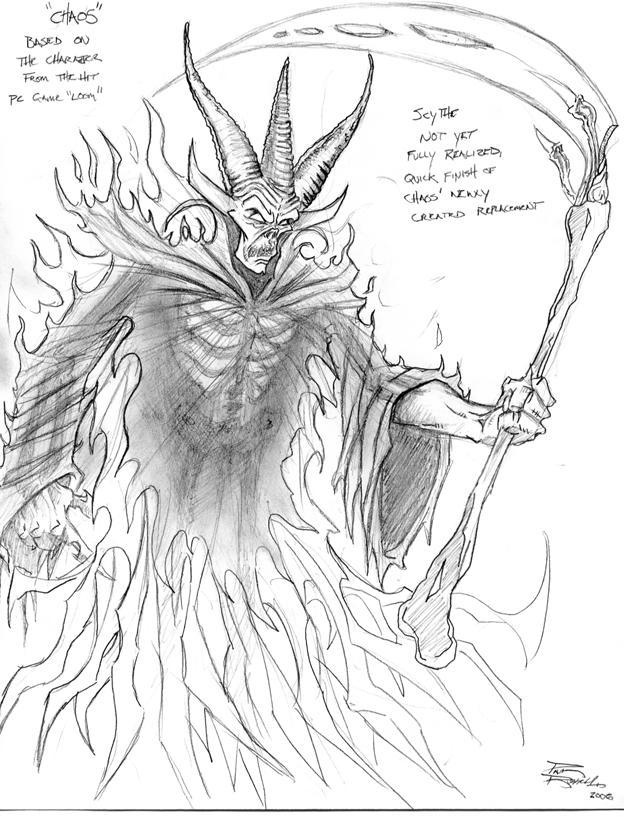 "CHAOS"
BASED ON
THE CHARACTER
FROM THE HIT
PC GAME "LOOM"
SCYTHE
NOT YET
FULLY REALIZED,
QUICK FINISH OF
CHAOS' NEWLY
CREATED REPLACEMENT
2006